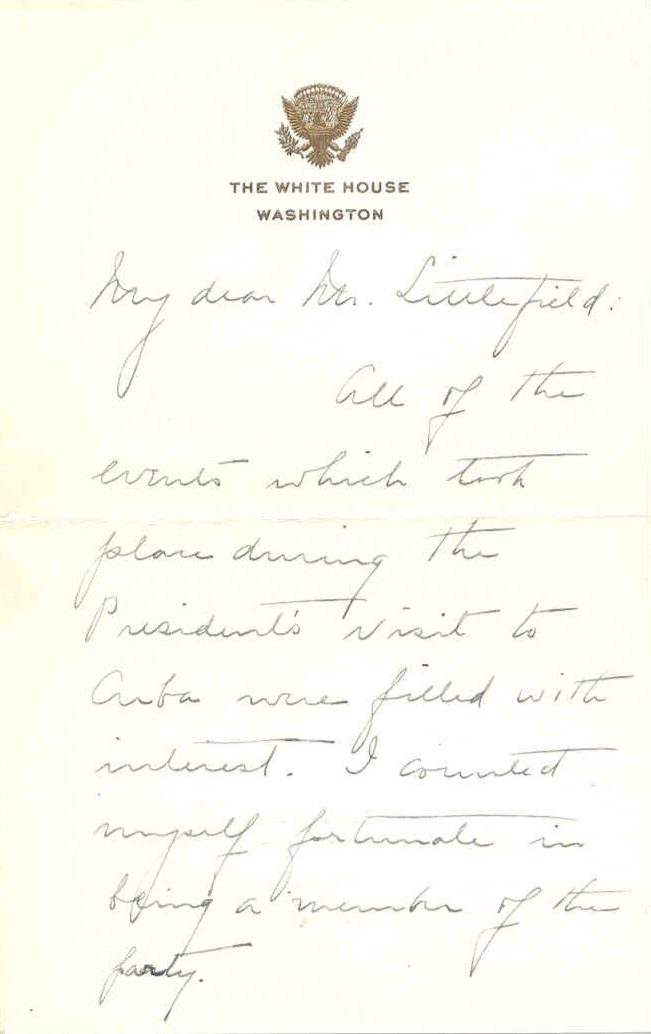 THE WHITE HOUSE
WASHINGTON
My dear Mr. Littlefield:
All of the
events which took
place during the
President's visit to
Cuba were filled with
interest. I counted
myself fortunate in
being a member of the
party.